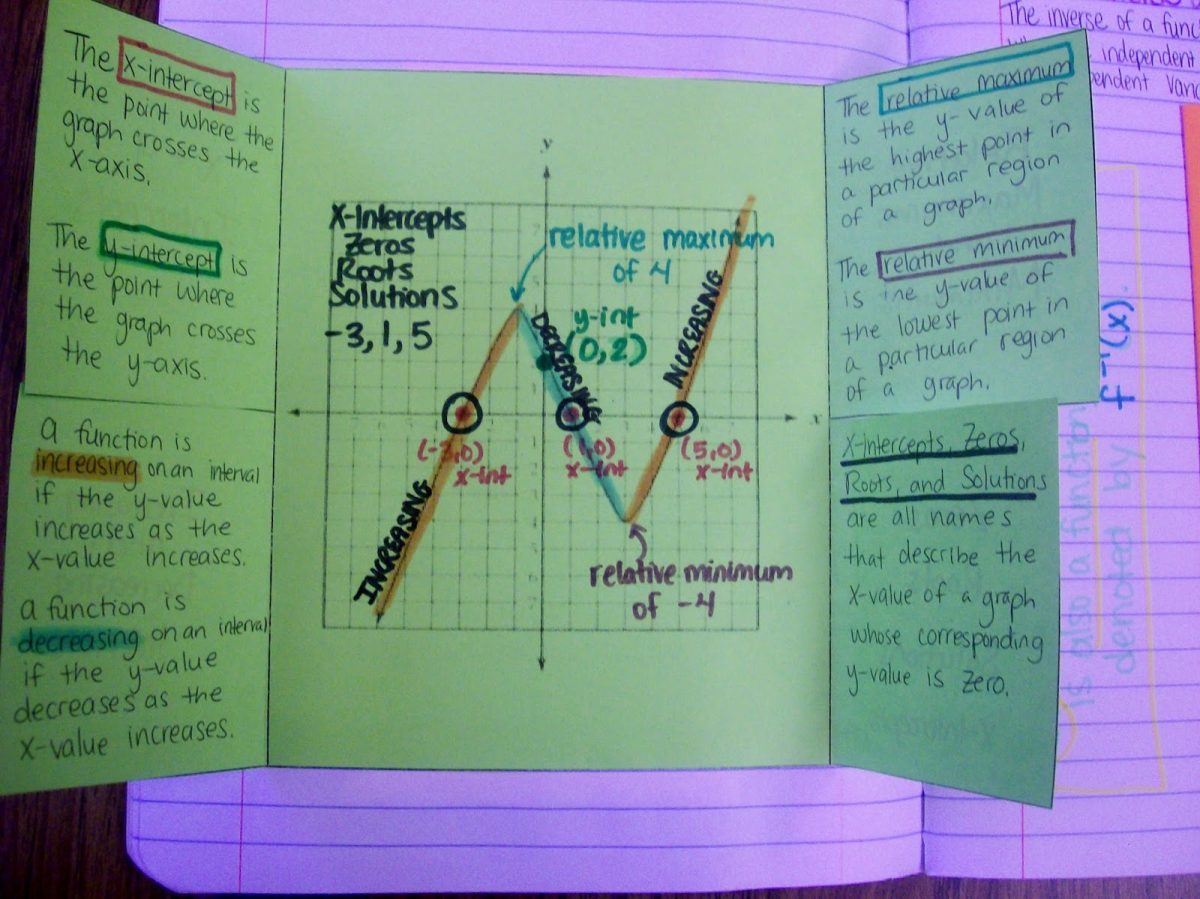 The x-intercept is
the point where the
graph crosses the
x-axis.
The y-intercept is
the point where
the graph crosses
the y-axis.
a function is
increasing on an interval
if the y-value
increases as the
x-value increases.
a function is
decreasing on an interval
if the y-value
decreases as the
x-value increases.
y
x
X-Intercepts
Zeros
Roots
Solutions
-3, 1, 5
relative maximum
of 4
y-int
(0,2)
INCREASING
DECREASING
INCREASING
(-3,0)
x-int
(1,0)
x-int
(5,0)
x-int
relative minimum
of -4
The relative maximum
is the y-value of
the highest point in
a particular region
of a graph.
The relative minimum
is the y-value of
the lowest point in
a particular region
of a graph.
X-Intercepts, Zeros,
Roots, and Solutions
are all names
that describe the
x-value of a graph
whose corresponding
y-value is zero.
The inverse of a func
independent
pendent vari
f⁻¹(x).
is also a function
denoted by